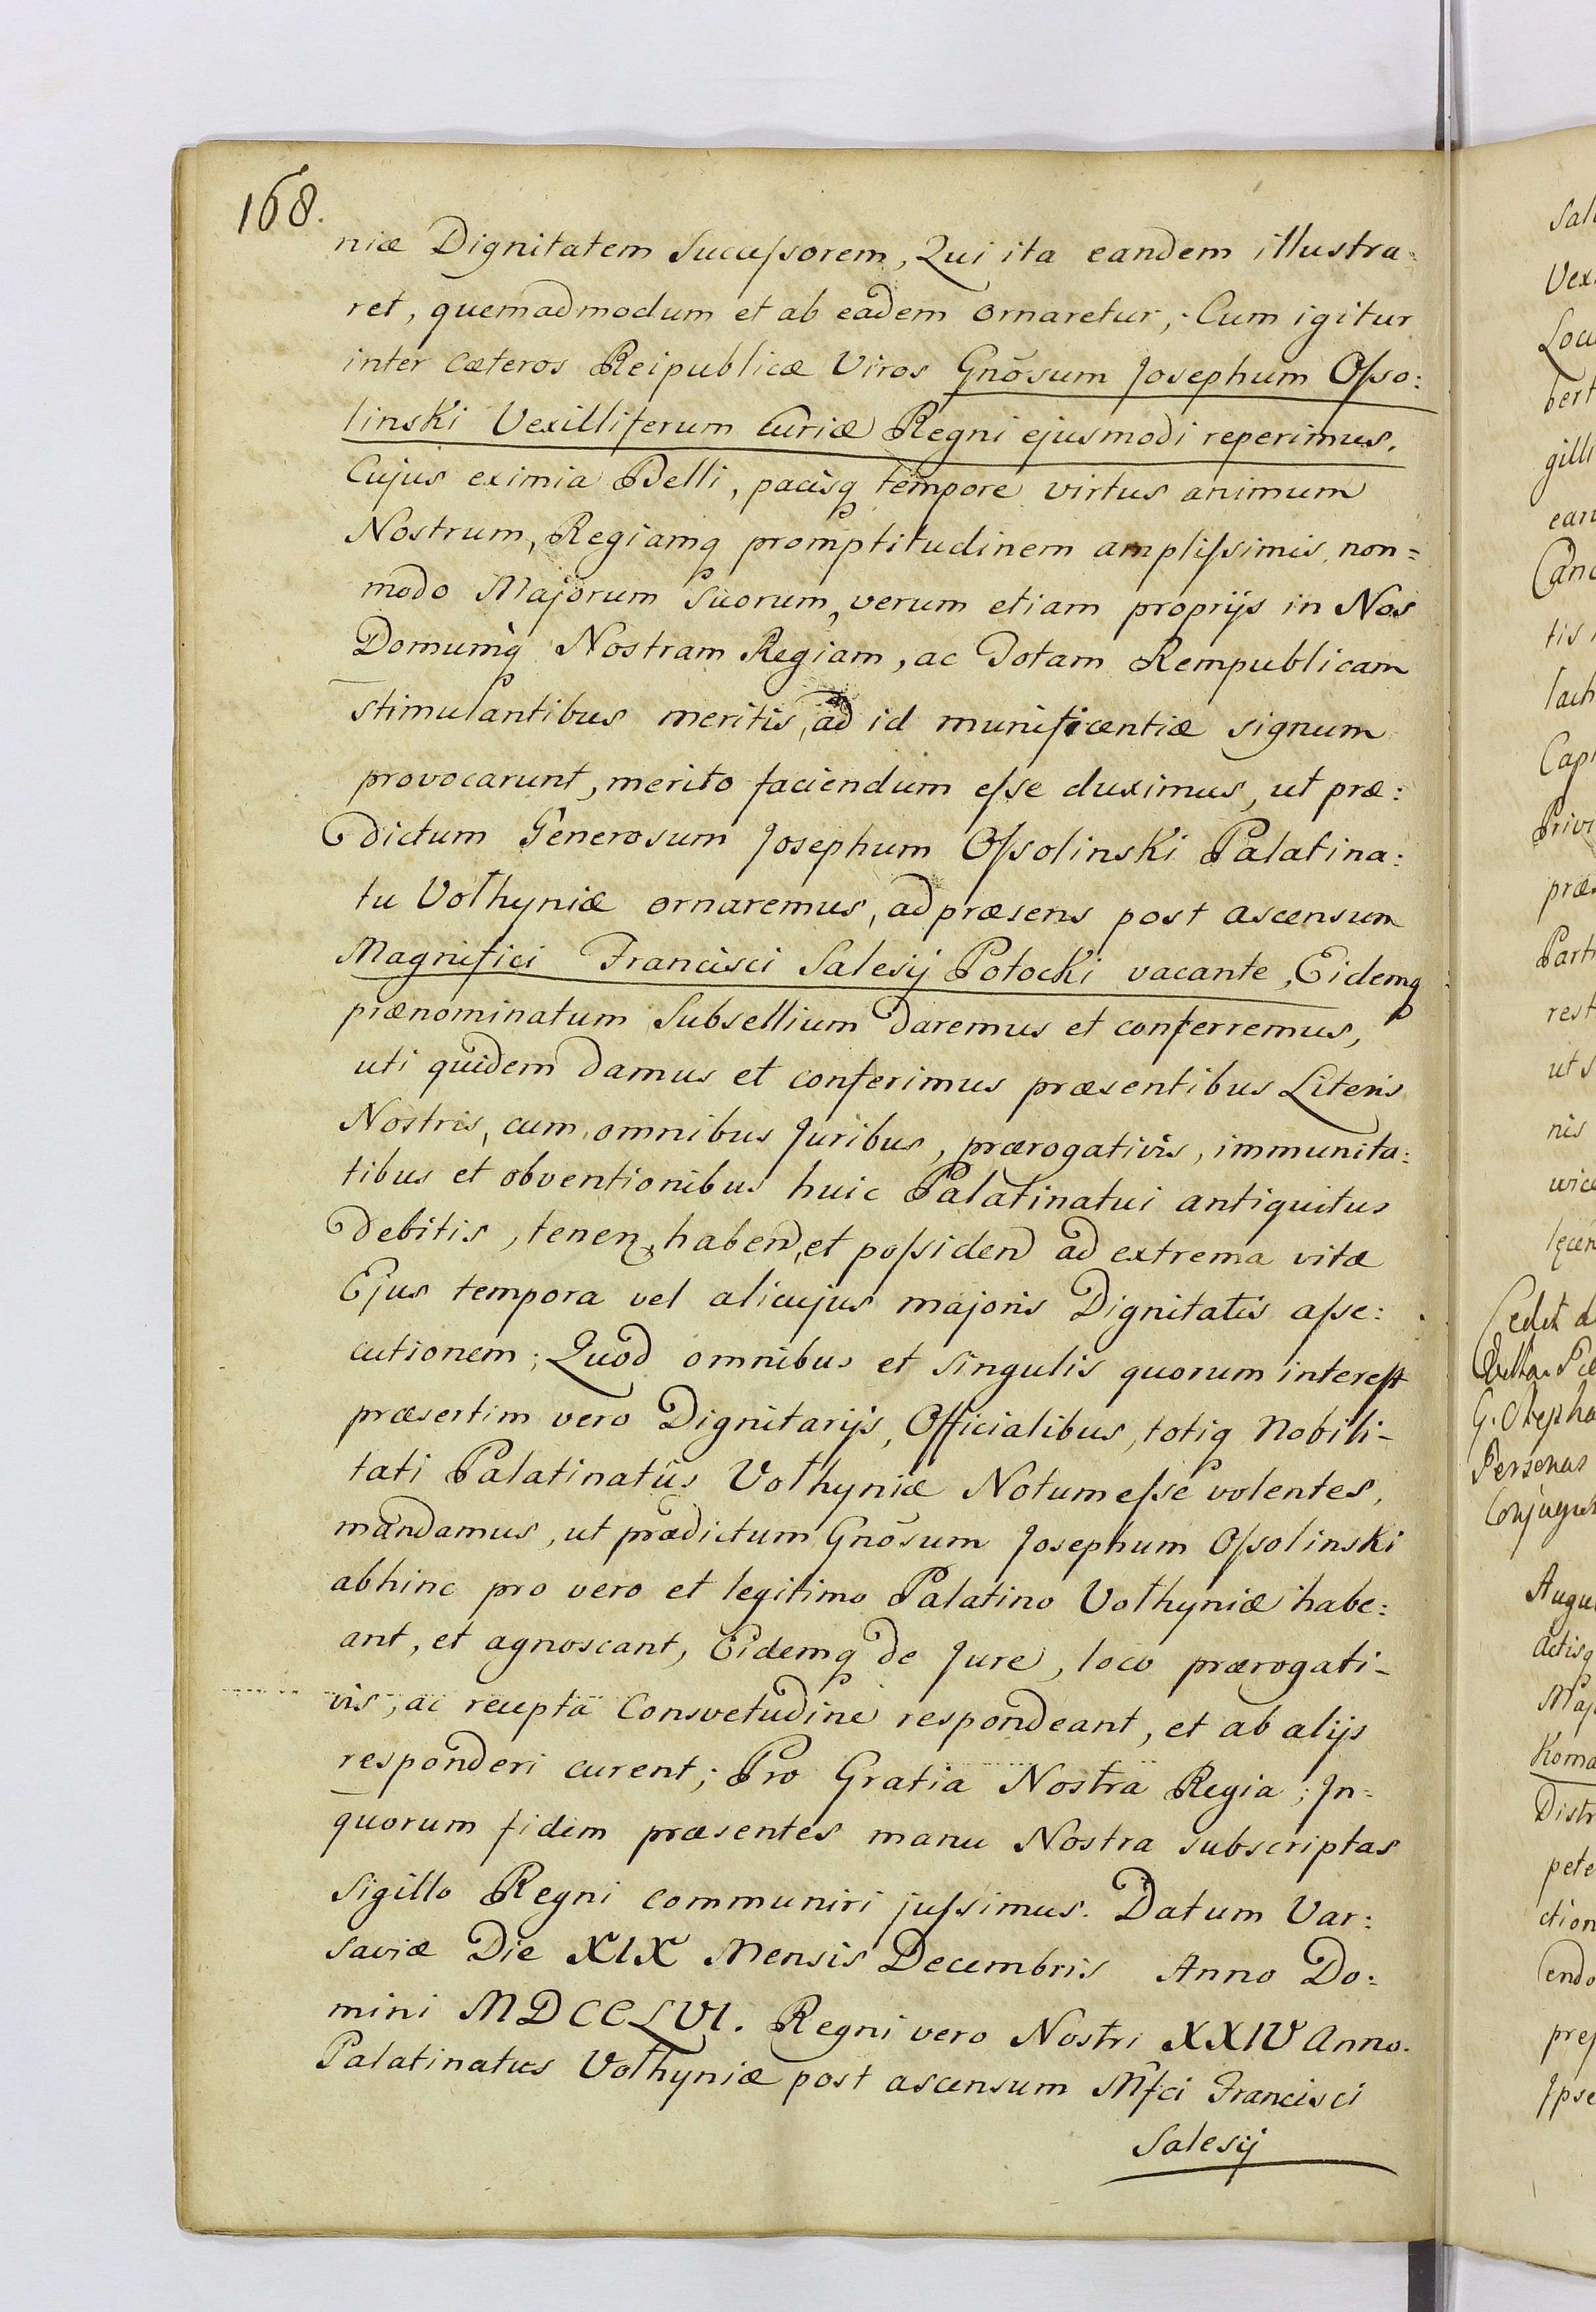 168.
niæ Dignitatem Successorem, Qui ita eandem illustra=
ret, quemadmodum et ab eadem ornaretur; Cum igitur
inter cæteros Reipublicæ Viros Gnõsum Josephum Osso:
linski Vexilliferum Curiæ Regni ejusmodi reperimus.
Cujus eximia Belli, pacisq tempore virtus animum
Nostrum, Regiamq promptitudinem amplissimis non=
modo Majorum Suorum, verum etiam proprijs in Nos
Domumq Nostram Regiam, ac Totam Rempublicam
stimulantibus meritis, ad id munificentiæ signum
provocarunt, merito faciendum esse duximus, ut præ:
dictum Generosum Josephum Ossolinski Palatina:
tu Volhyniæ ornaremus, ad præsens post ascensum
Magnifici Francisci Salesij Potocki vacante, Eidemq
prænominatum Subsellium daremus et conferremus,
uti quidem damus et conferimus præsentibus Literis
Nostris, cum omnibus Juribus, prærogativis, immunita:
tibus et obventionibus huic Palatinatui antiquitus
debitis, tenen, haben, et possiden ad extrema vitæ
Ejus tempora vel alicujus majoris Dignitatis asse:
cutionem; Quod omnibus et singulis quorum interest
præsertim vero Dignitarijs, Officialibus, totiq Nobili-
tati Palatinatûs Volhyniæ Notum esse volentes,
mandamus, ut prædictum Gnõsum Josephum Ossolinski
abhinc pro vero et legitimo Palatino Volhyniæ habe:
ant, et agnoscant, Eidemq de Jure, loco prærogati-
vis, ac recepta Consvetudine respondeant, et ab alijs
responderi curent; Pro Gratia Nostra Regia; In=
quorum fidem præsentes manu Nostra subscriptas
Sigillo Regni communiri jussimus. Datum Var:
saviæ Die XIX Mensis Decembris Anno Do:
mini MDCCLVI. Regni vero Nostri XXIV Anno.
Palatinatus Volhyniæ post ascensum Mfci Francisci
Salesij